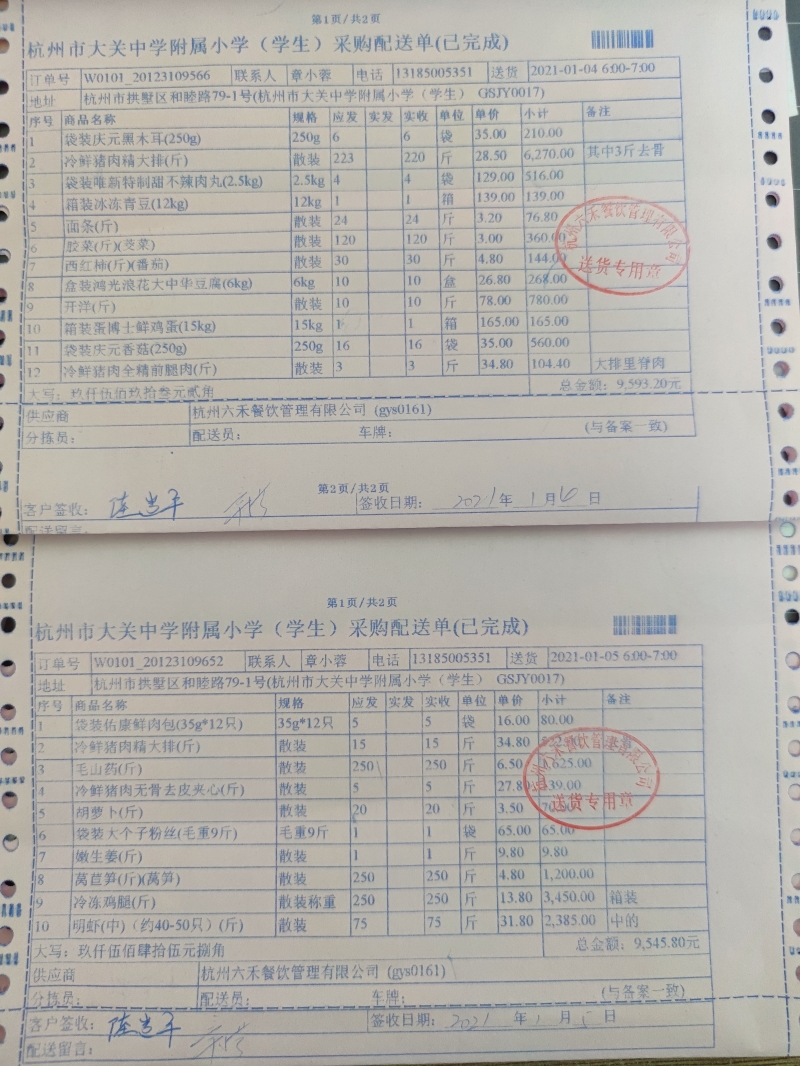 第1页/共2页
杭州市大关中学附属小学（学生）采购配送单(已完成)
订单号 W0101_20123109566 联系人 章小蓉 电话 13185005351 送货 2021-01-04 6:00-7:00
地址 杭州市拱墅区和睦路79-1号(杭州市大关中学附属小学（学生） GSJY0017)
序号 商品名称 规格 应发 实发 实收 单位 单价 小计 备注
1 袋装庆元黑木耳(250g) 250g 6 6 袋 35.00 210.00
2 冷鲜猪肉精大排(斤) 散装 223 220 斤 28.50 6,270.00 其中3斤去骨
3 袋装唯新特制甜不辣肉丸(2.5kg) 2.5kg 4 4 袋 129.00 516.00
4 箱装冰冻青豆(12kg) 12kg 1 1 箱 139.00 139.00
5 面条(斤) 散装 24 24 斤 3.20 76.80
6 胶菜(斤)(茭菜) 散装 120 120 斤 3.00 360.00
7 西红柿(斤)(番茄) 散装 30 30 斤 4.80 144.00
8 盒装鸿光浪花大中华豆腐(6kg) 6kg 10 10 盒 26.80 268.00
9 开洋(斤) 散装 10 10 斤 78.00 780.00
10 箱装蛋博士鲜鸡蛋(15kg) 15kg 1 1 箱 165.00 165.00
11 袋装庆元香菇(250g) 250g 16 16 袋 35.00 560.00
12 冷鲜猪肉全精前腿肉(斤) 散装 3 3 斤 34.80 104.40 大排里脊肉
大写：玖仟伍佰玖拾叁元贰角 总金额：9,593.20元
供应商 杭州六禾餐饮管理有限公司 (gys0161)
分拣员： 配送员： 车牌： (与备案一致)
杭州六禾餐饮管理有限公司
送货专用章
第2页/共2页
客户签收： 签收日期： 2021年 1月 日
配送留言：
第1页/共2页
杭州市大关中学附属小学（学生）采购配送单(已完成)
订单号 W0101_20123109652 联系人 章小蓉 电话 13185005351 送货 2021-01-05 6:00-7:00
地址 杭州市拱墅区和睦路79-1号(杭州市大关中学附属小学（学生） GSJY0017)
序号 商品名称 规格 应发 实发 实收 单位 单价 小计 备注
1 袋装佑康鲜肉包(35g*12只) 35g*12只 5 5 袋 16.00 80.00
2 冷鲜猪肉精大排(斤) 散装 15 15 斤 34.80
3 毛山药(斤) 散装 250 250 斤 6.50 1,625.00
4 冷鲜猪肉无骨去皮夹心(斤) 散装 5 5 斤 27.80 139.00
5 胡萝卜(斤) 散装 20 20 斤 3.50 70.00
6 袋装大个子粉丝(毛重9斤) 毛重9斤 1 1 袋 65.00 65.00
7 嫩生姜(斤) 散装 1 1 斤 9.80 9.80
8 莴苣笋(斤)(莴笋) 散装 250 250 斤 4.80 1,200.00
9 冷冻鸡腿(斤) 散装称重 250 250 斤 13.80 3,450.00 箱装
10 明虾(中)（约40-50只）(斤) 散装 75 75 斤 31.80 2,385.00 中的
大写：玖仟伍佰肆拾伍元捌角 总金额：9,545.80元
供应商 杭州六禾餐饮管理有限公司 (gys0161)
分拣员： 配送员： 车牌： (与备案一致)
杭州六禾餐饮管理有限公司
送货专用章
客户签收： 签收日期： 2021 年 1 月 5 日
配送留言：